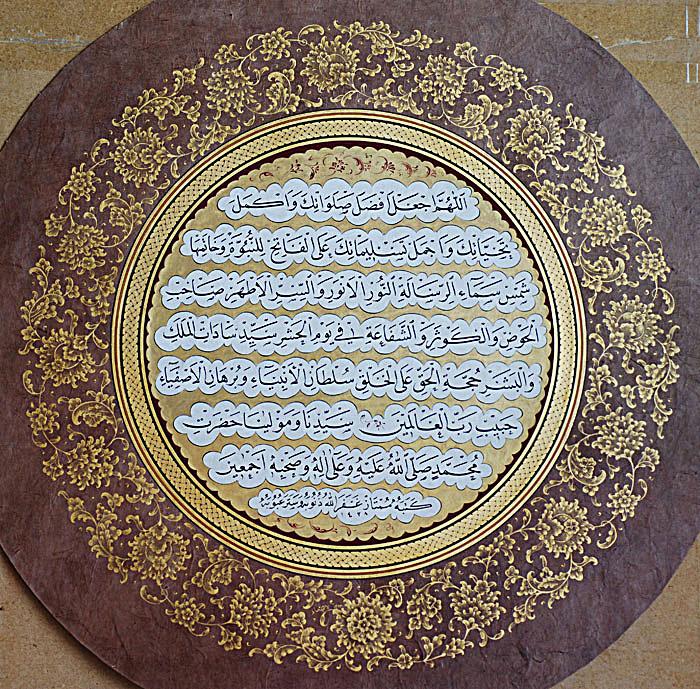 اللهم اجعل افضل صلواتك واكمل
تحياتك واجمل تسليماتك على الفاتح للنبوة وخاتمها
شمس سماء الرسالة النور الانور والسر الاطهر صاحب
الحوض والكوثر والشفاعة في يوم الحشر سيد سادات الملك
والبشر حجة الحق على الخلق سلطان الأنبياء وبرهان الأصفياء
حبيب رب العالمين سيدنا ومولينا حضرت
محمد صلى الله عليه وعلى اله وصحبه اجمعين
كتبه ممتاز غفر الله ذنوبه وستر عيوبه